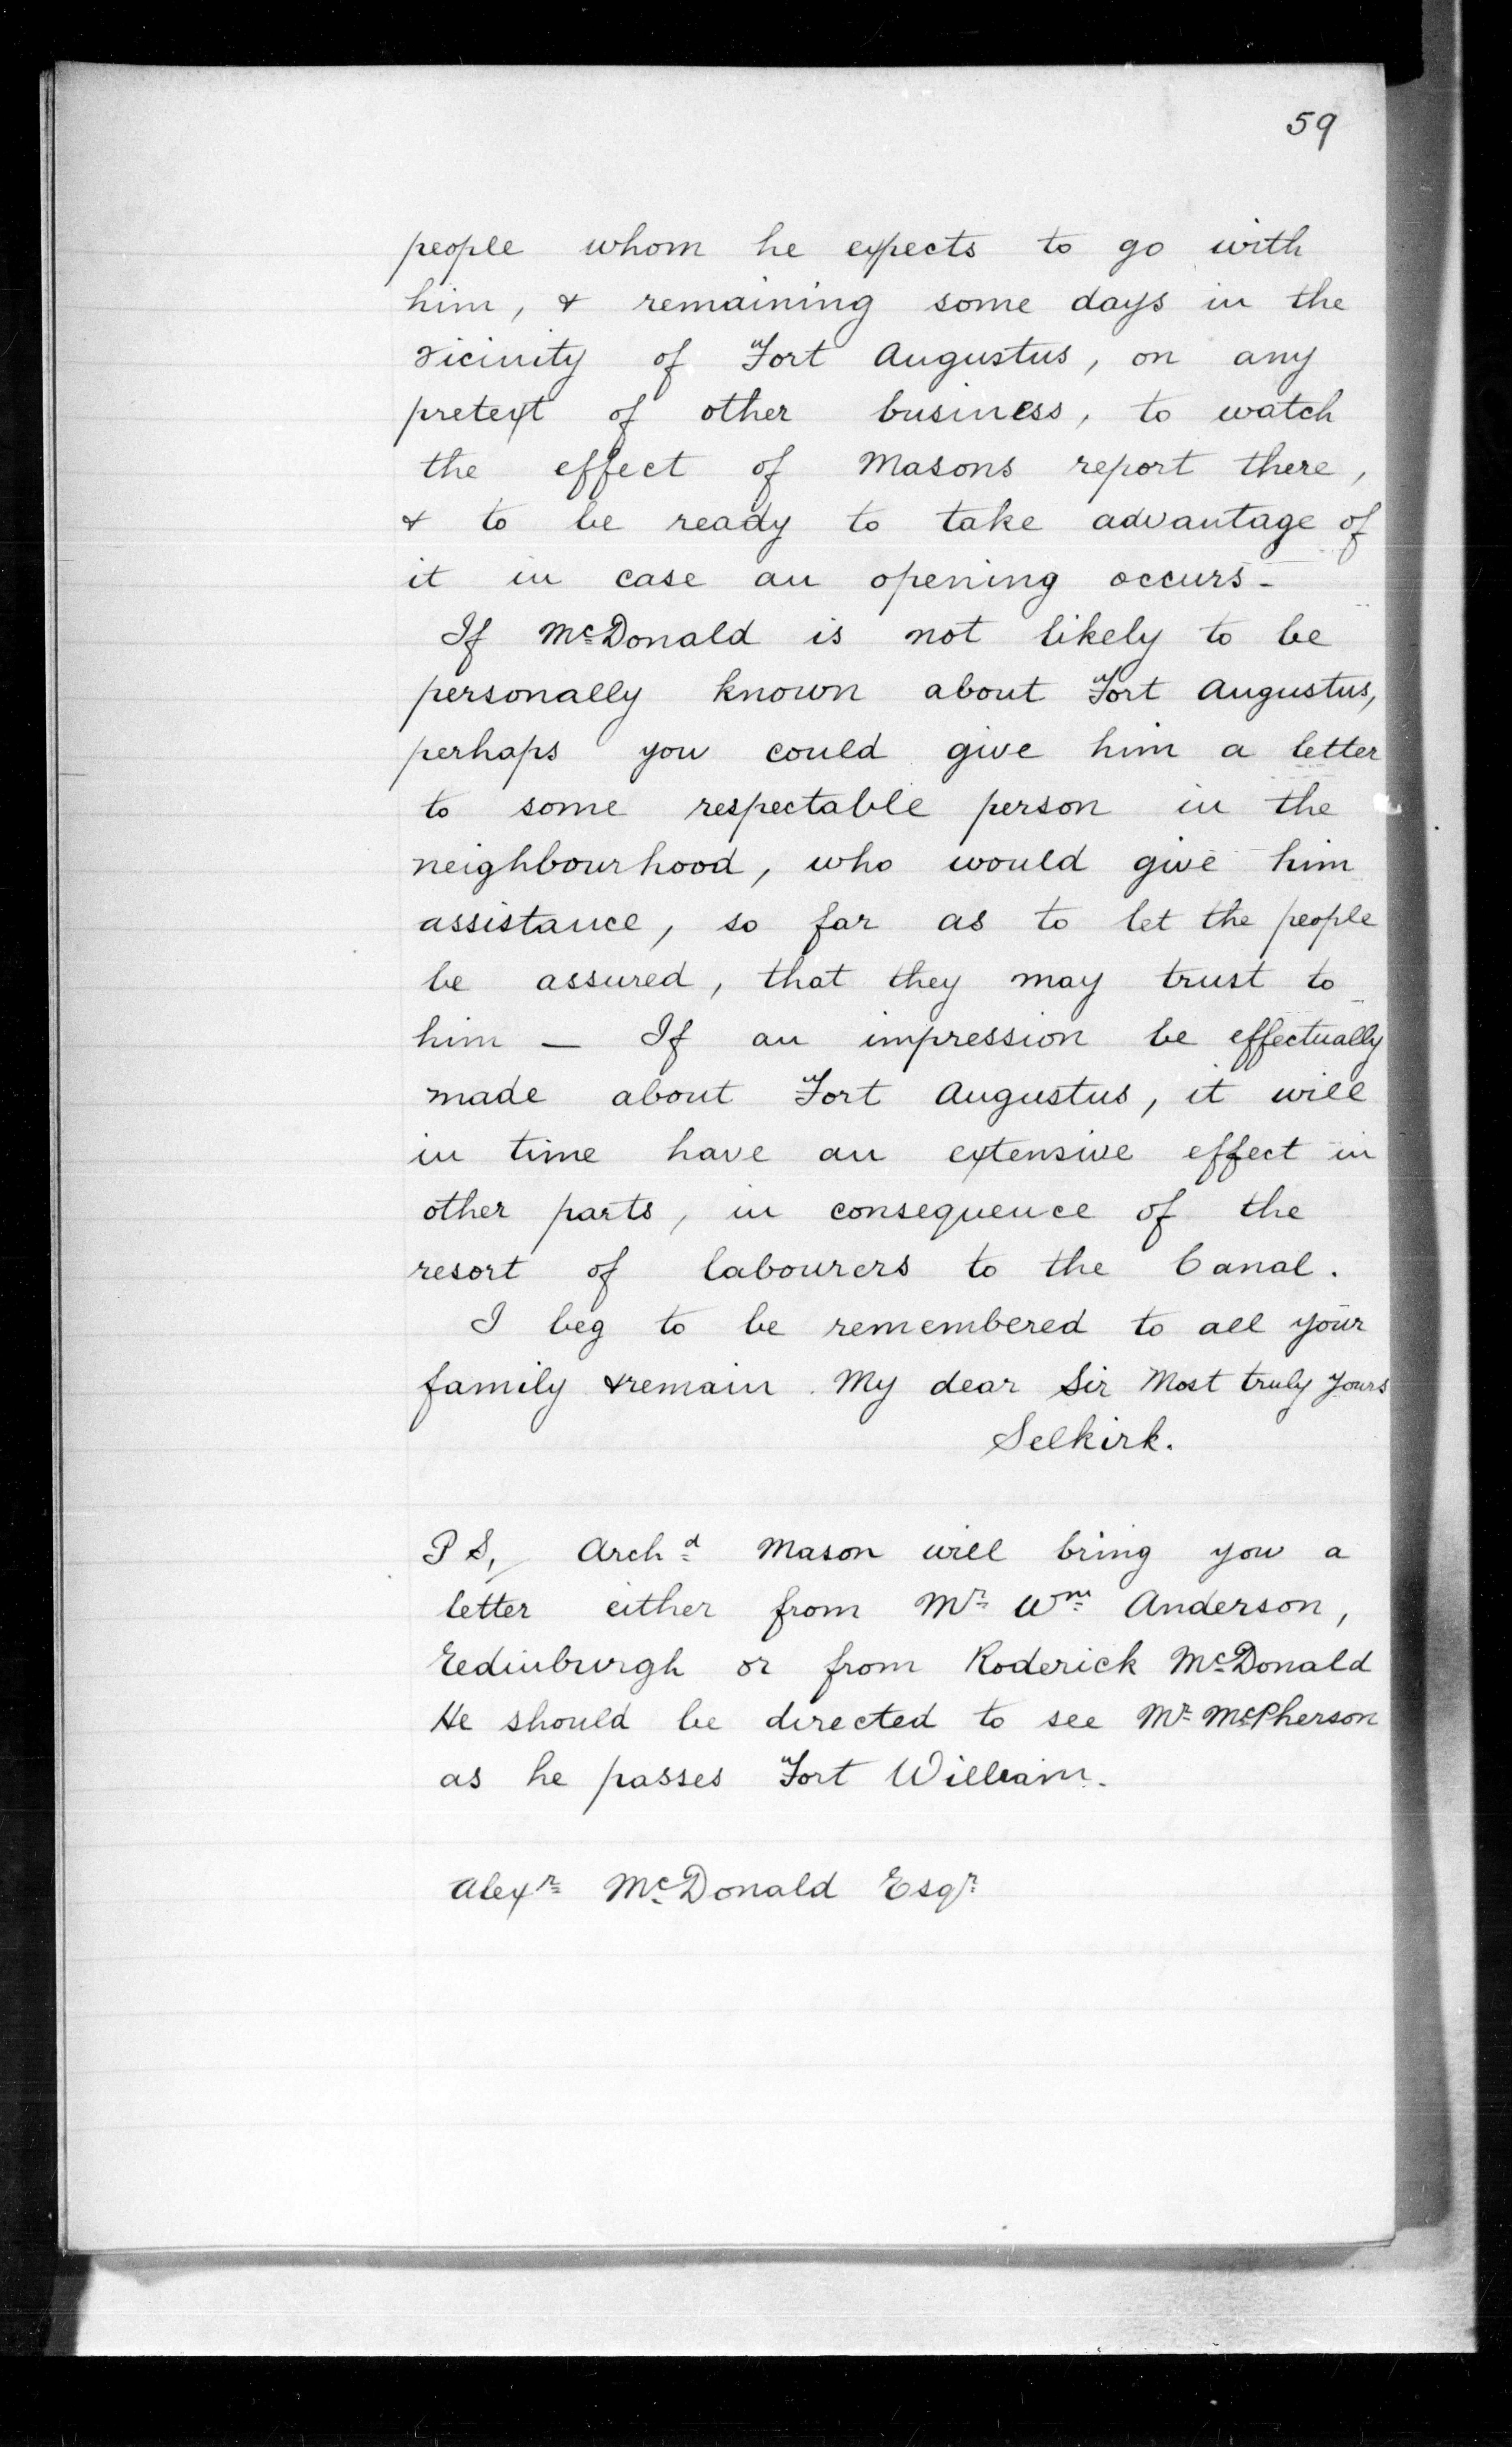 59
people whom he expects to go with
him, & remaining some days in the
vicinity of Fort Augustus, on any
pretext of other business, to watch
the effect of Masons report there,
& to be ready to take advantage of
it in case an opening occurs -
If McDonald is not likely to be
personally known about Fort Augustus,
perhaps you could give him a letter
to some respectable person in the
neighbourhood, who would give him
assistance, so far as to let the people
be assured, that they may trust to
him — If an impression be effectually
made about Fort Augustus, it will
in time have an extensive effect in
other parts, in consequence of the
resort of labourers to the Canal.
I beg to be remembered to all your
family & remain. My dear Sir Most truly Yours
Selkirk.
P S, Archd Mason will bring you a
letter either from Mr Wm Anderson,
Eedinburgh or from Roderick McDonald
He should be directed to see Mr McPherson
as he passes Fort William.
Alexr McDonald Esqr